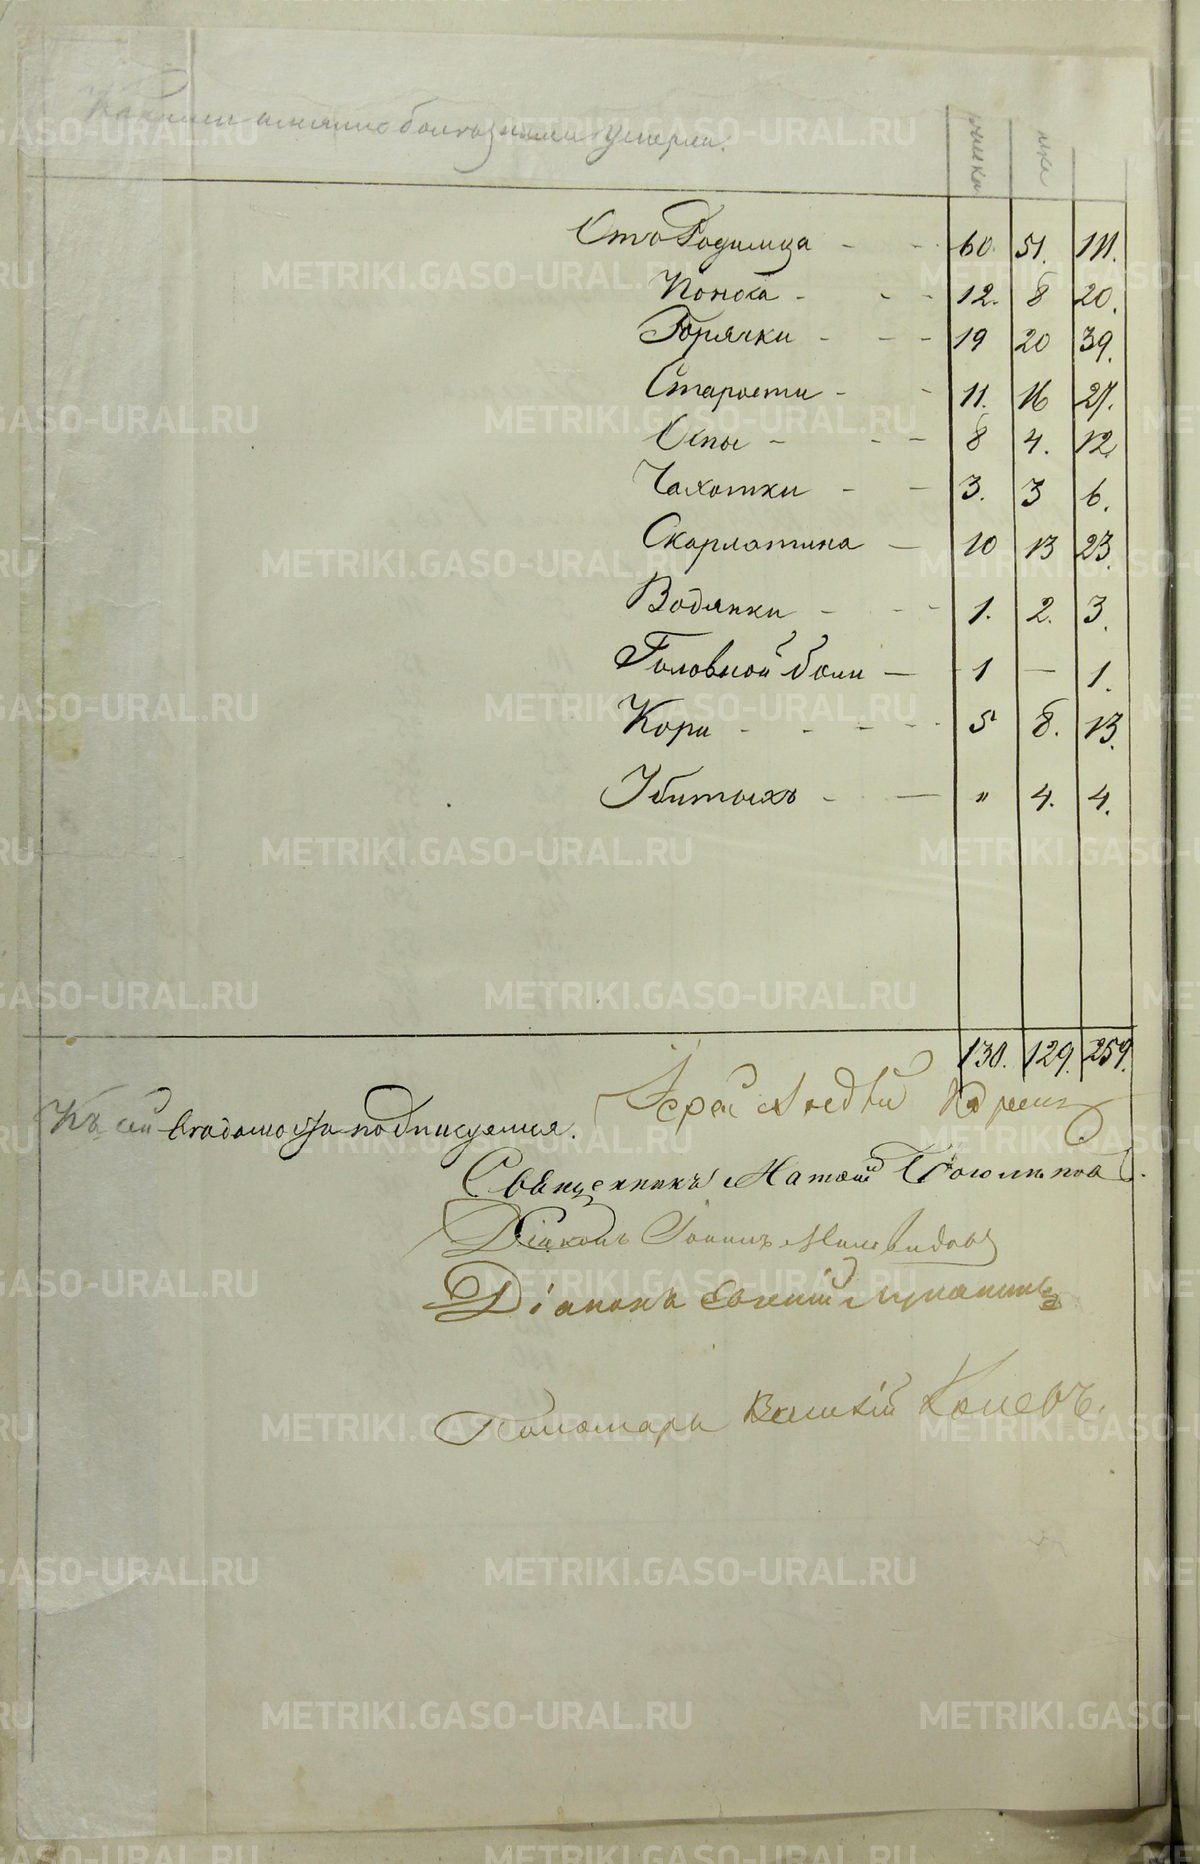 Какими именно болезнями умерли.
Отъ Родимца - - 60. 51. 111.
Поноса - - - 12. 8 20.
Горячки - - - 19 20 39.
Старости - - 11. 16 27.
Оспы - - - 8 4. 12
Чахотки - - 3. 3 6.
Скарлатина — 10 13 23.
Водянки - - - 1. 2. 3.
Головной боли — 1 — 1.
Кори - - - - 5 8. 13.
Убитыхъ - — " 4. 4.
130. 129. 259.
Къ сей вѣдомости подписуемся. Іерей
Священникъ Матѳій
Діаконъ Іоаннъ Миловидовъ
Діаконъ Евгеній Лукановъ
Пономарь
METRIKI.GASO-URAL.RU